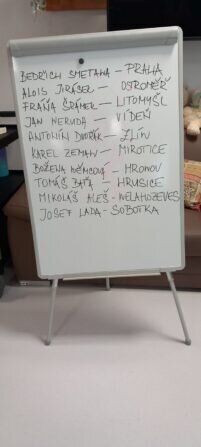 BEDŘICH SMETANA – PRAHA
ALOIS JIRÁSEK – OSTROMĚŘ
FRÁŇA ŠRÁMEK – LITOMYŠL
JAN NERUDA – VÍDEŇ
ANTONÍN DVOŘÁK – ZLÍN
KAREL ZEMAN – MIROTICE
BOŽENA NĚMCOVÁ – HRONOV
TOMÁŠ BAŤA – HRUSICE
MIKOLÁŠ ALEŠ – NELAHOZEVES
JOSEF LADA – SOBOTKA